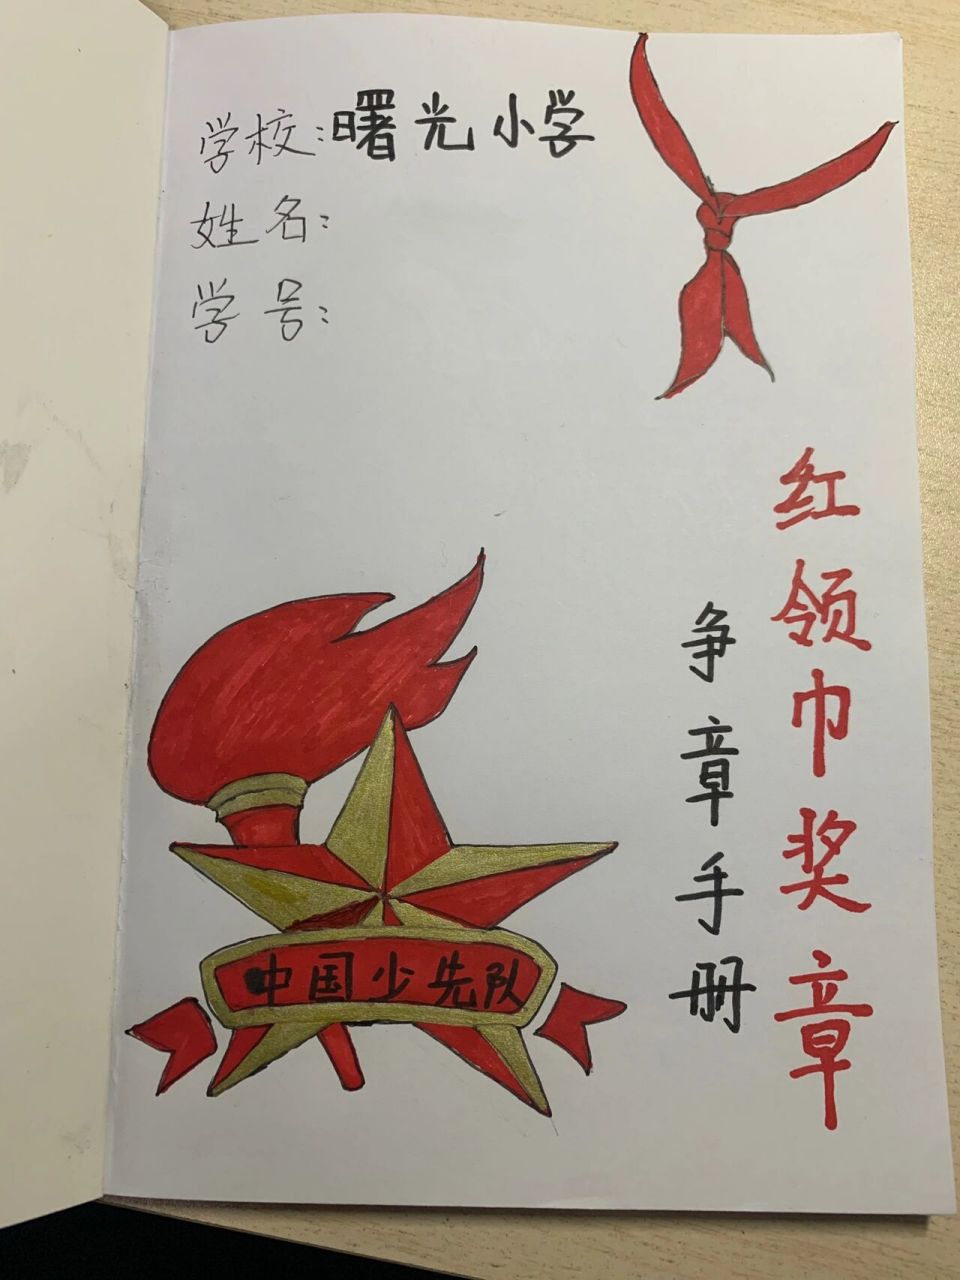 学校:曙光小学
姓名:
学号:
红领巾奖章
争章手册
中国少先队